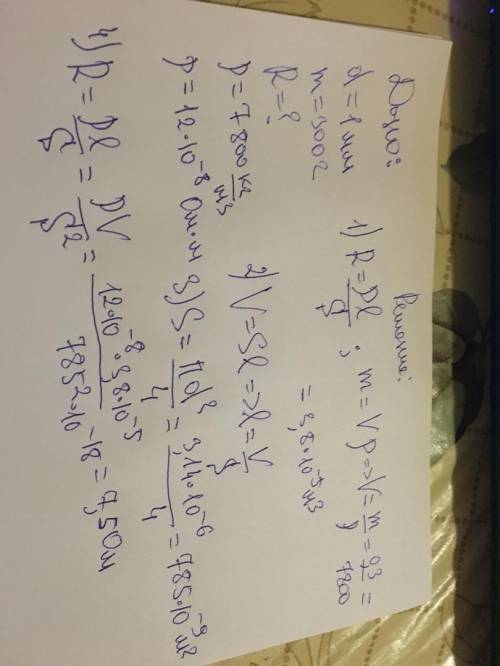 Дано:
d = 1 мм
m = 300 г
R = ?
ρ = 7800 кг/м3
ρ = 12·10^-8 Ом·м
Решение:
1) R = ρl/S ; m = Vρ => V = m/ρ = 0,3/7800 =
= 3,8·10^-5 м3
2) V = Sl => l = V/S
3) S = πd²/4 = 3,14·10^-6/4 = 785·10^-9 м2
4) R = ρl/S = ρV/S² = 12·10^-8·3,8·10^-5/785²·10^-18 = 7,5 Ом